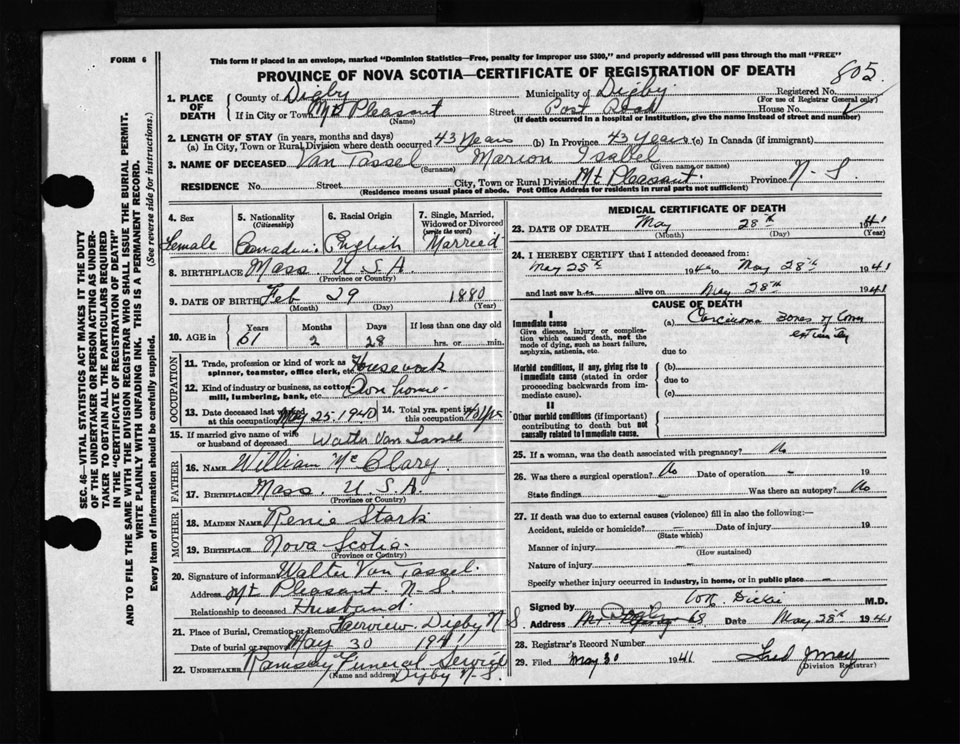 FORM 6
This form if placed in an envelope, marked "Dominion Statistics—Free, penalty for improper use $300," and properly addressed will pass through the mail "FREE"
PROVINCE OF NOVA SCOTIA—CERTIFICATE OF REGISTRATION OF DEATH
805
1. PLACE OF DEATH
County of Digby Municipality of Digby Registered No.
(For use of Registrar General only)
If in City or Town Mt Pleasant Street Post Road House No.
(Name) (If death occurred in a hospital or institution, give the name instead of street and number)
2. LENGTH OF STAY (in years, months and days)
(a) In City, Town or Rural Division where death occurred 43 Years (b) In Province 43 Years (c) In Canada (if immigrant)
3. NAME OF DECEASED Van Tassel Marion Isabel
(Surname) (Given name or names)
RESIDENCE No. Street City, Town or Rural Division Mt. Pleasant Province N-S.
(Residence means usual place of abode. Post Office Address for residents in rural parts not sufficient)
4. Sex
Female
5. Nationality
(Citizenship)
Canadian
6. Racial Origin
English
7. Single, Married, Widowed or Divorced
(write the word)
Married
8. BIRTHPLACE Mass. U.S.A
(Province or Country)
9. DATE OF BIRTH Feb 29 1880
(Month) (Day) (Year)
10. AGE in
Years Months Days If less than one day old
61 2 28 hrs. or min.
OCCUPATION
11. Trade, profession or kind of work as spinner, teamster, office clerk, etc. Housework
12. Kind of industry or business, as cotton mill, lumbering, bank, etc. Own home
13. Date deceased last worked at this occupation May 25. 1940
14. Total yrs. spent in this occupation
15. If married give name of wife or husband of deceased Walter Van Tassel
FATHER
16. NAME William McClary
17. BIRTHPLACE Mass. U.S.A.
(Province or Country)
MOTHER
18. MAIDEN NAME Renie Stark
19. BIRTHPLACE Nova Scotia
(Province or Country)
20. Signature of informant Walter Van Tassel.
Address Mt Pleasant N-S.
Relationship to deceased Husband.
21. Place of Burial, Cremation or Removal Fairview Digby N S
Date of burial or removal May 30 1941
22. UNDERTAKER Ramsay Funeral Service
(Name and address) Digby N-S.
MEDICAL CERTIFICATE OF DEATH
23. DATE OF DEATH May 28th 1941
(Month) (Day) (Year)
24. I HEREBY CERTIFY that I attended deceased from:
May 25th 1940 to May 28th 1941
and last saw her alive on May 28th 1941
CAUSE OF DEATH
I
Immediate cause
Give disease, injury or complication which caused death, not the mode of dying, such as heart failure, asphyxia, asthenia, etc.
(a) Carcinoma Bones of Lower
extremity
due to
Morbid conditions, if any, giving rise to immediate cause (stated in order proceeding backwards from immediate cause)
(b)
due to
(c)
II
Other morbid conditions (if important) contributing to death but not causally related to immediate cause.
25. If a woman, was the death associated with pregnancy? No
26. Was there a surgical operation? No Date of operation – 19
State findings – Was there an autopsy? No
27. If death was due to external causes (violence) fill in also the following:—
Accident, suicide or homicide? – Date of injury 19
(State which)
Manner of injury –
(How sustained)
Nature of injury –
Specify whether injury occurred in industry, in home, or in public place –
Signed by Dickie M.D.
Address Digby N S Date May 28th 1941
28. Registrar's Record Number
29. Filed May 30 1941 Fred J May
(Division Registrar)
SEC. 46—VITAL STATISTICS ACT MAKES IT THE DUTY
OF THE UNDERTAKER OR PERSON ACTING AS UNDER-
TAKER TO OBTAIN ALL THE PARTICULARS REQUIRED
IN THE "CERTIFICATE OF REGISTRATION OF DEATH"
AND TO FILE THE SAME WITH THE DIVISION REGISTRAR WHO SHALL ISSUE THE BURIAL PERMIT.
WRITE PLAINLY WITH UNFADING INK. THIS IS A PERMANENT RECORD.
Every item of information should be carefully supplied. (See reverse side for instructions.)